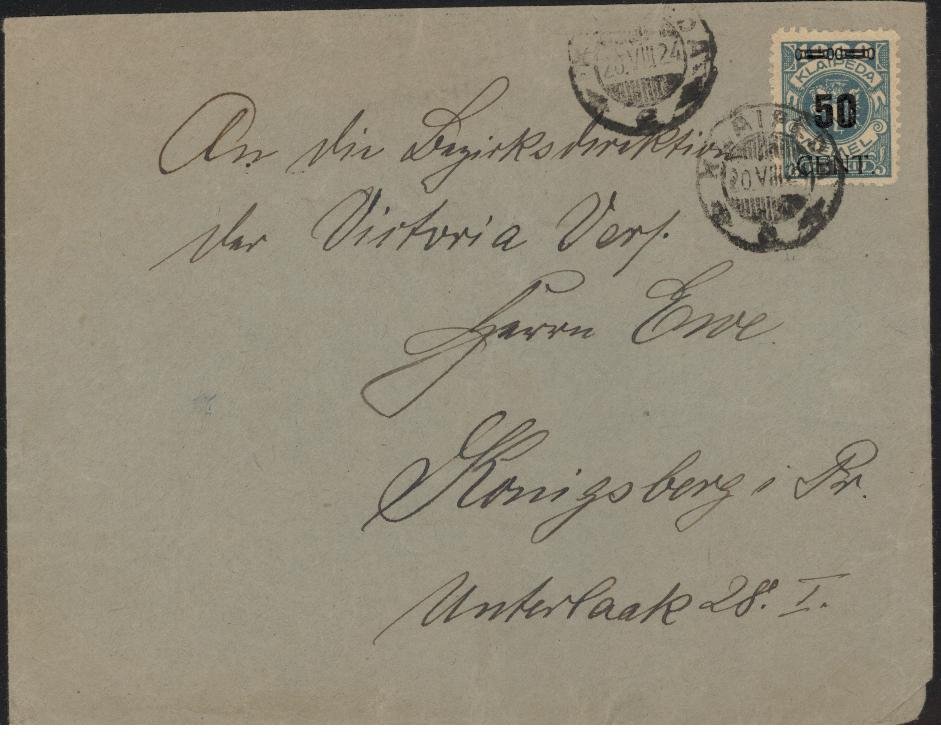 KLAIPEDA
20.VIII.24
2
KLAIPEDA
50
MEMEL
CENT
KLAIPEDA
20.VIII.24
An die Bezirksdirektion
der Victoria Vers.
Herrn Ewe
Königsberg i Pr.
Unterlaak 28. I.